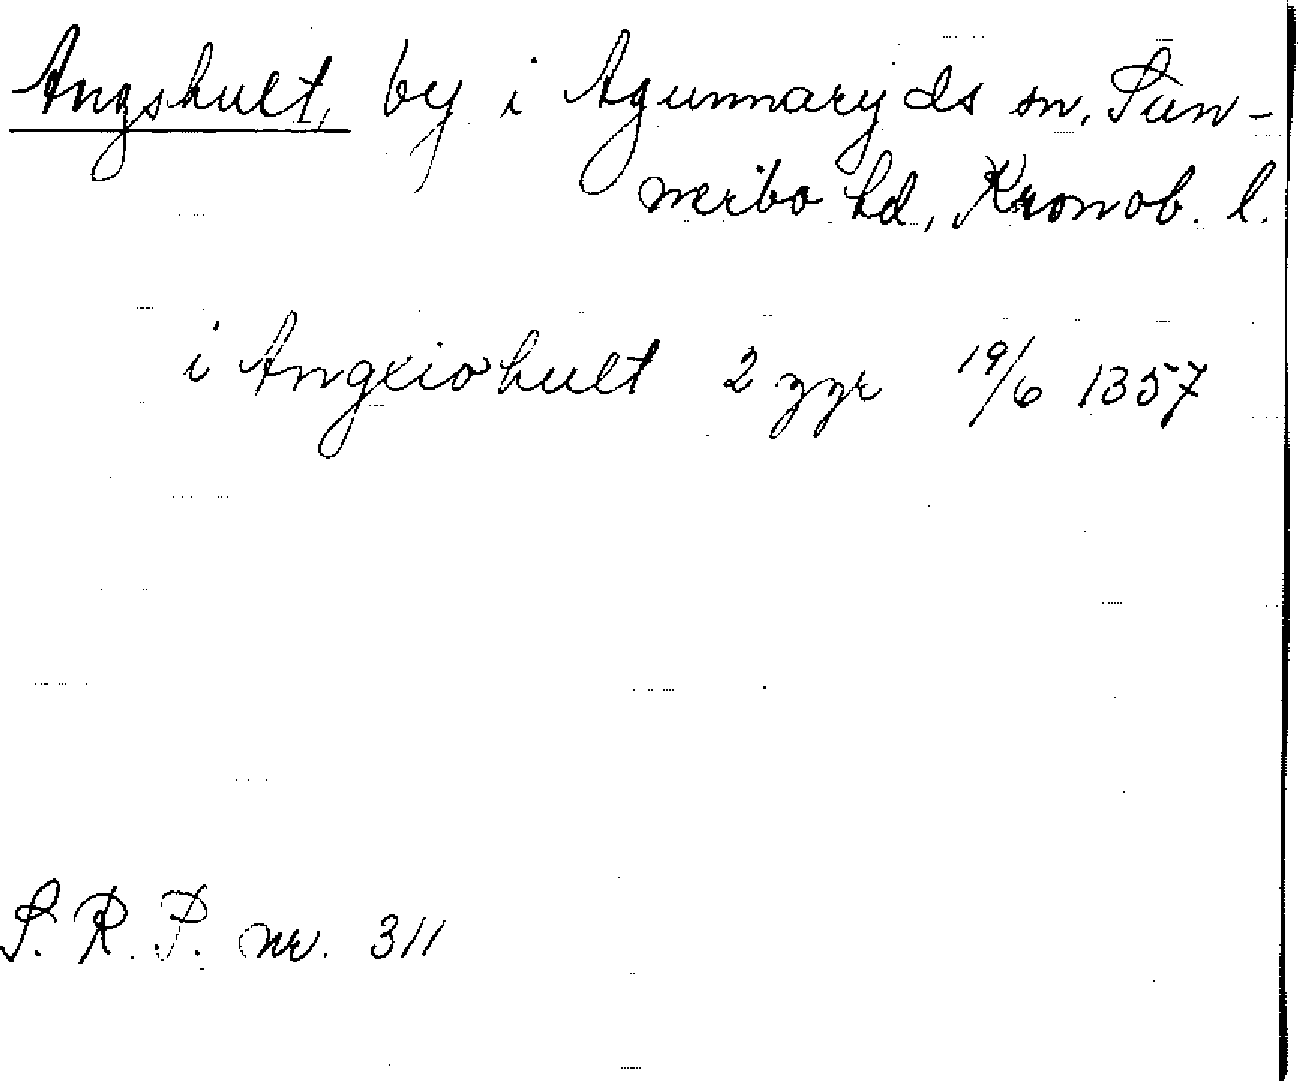 Angshult, by i Agunnaryds sn, Sun-
nerbo hd, Kronob. l.
i Angxiohult 2 zyr 19/6 1357
S. R. P. nr. 311